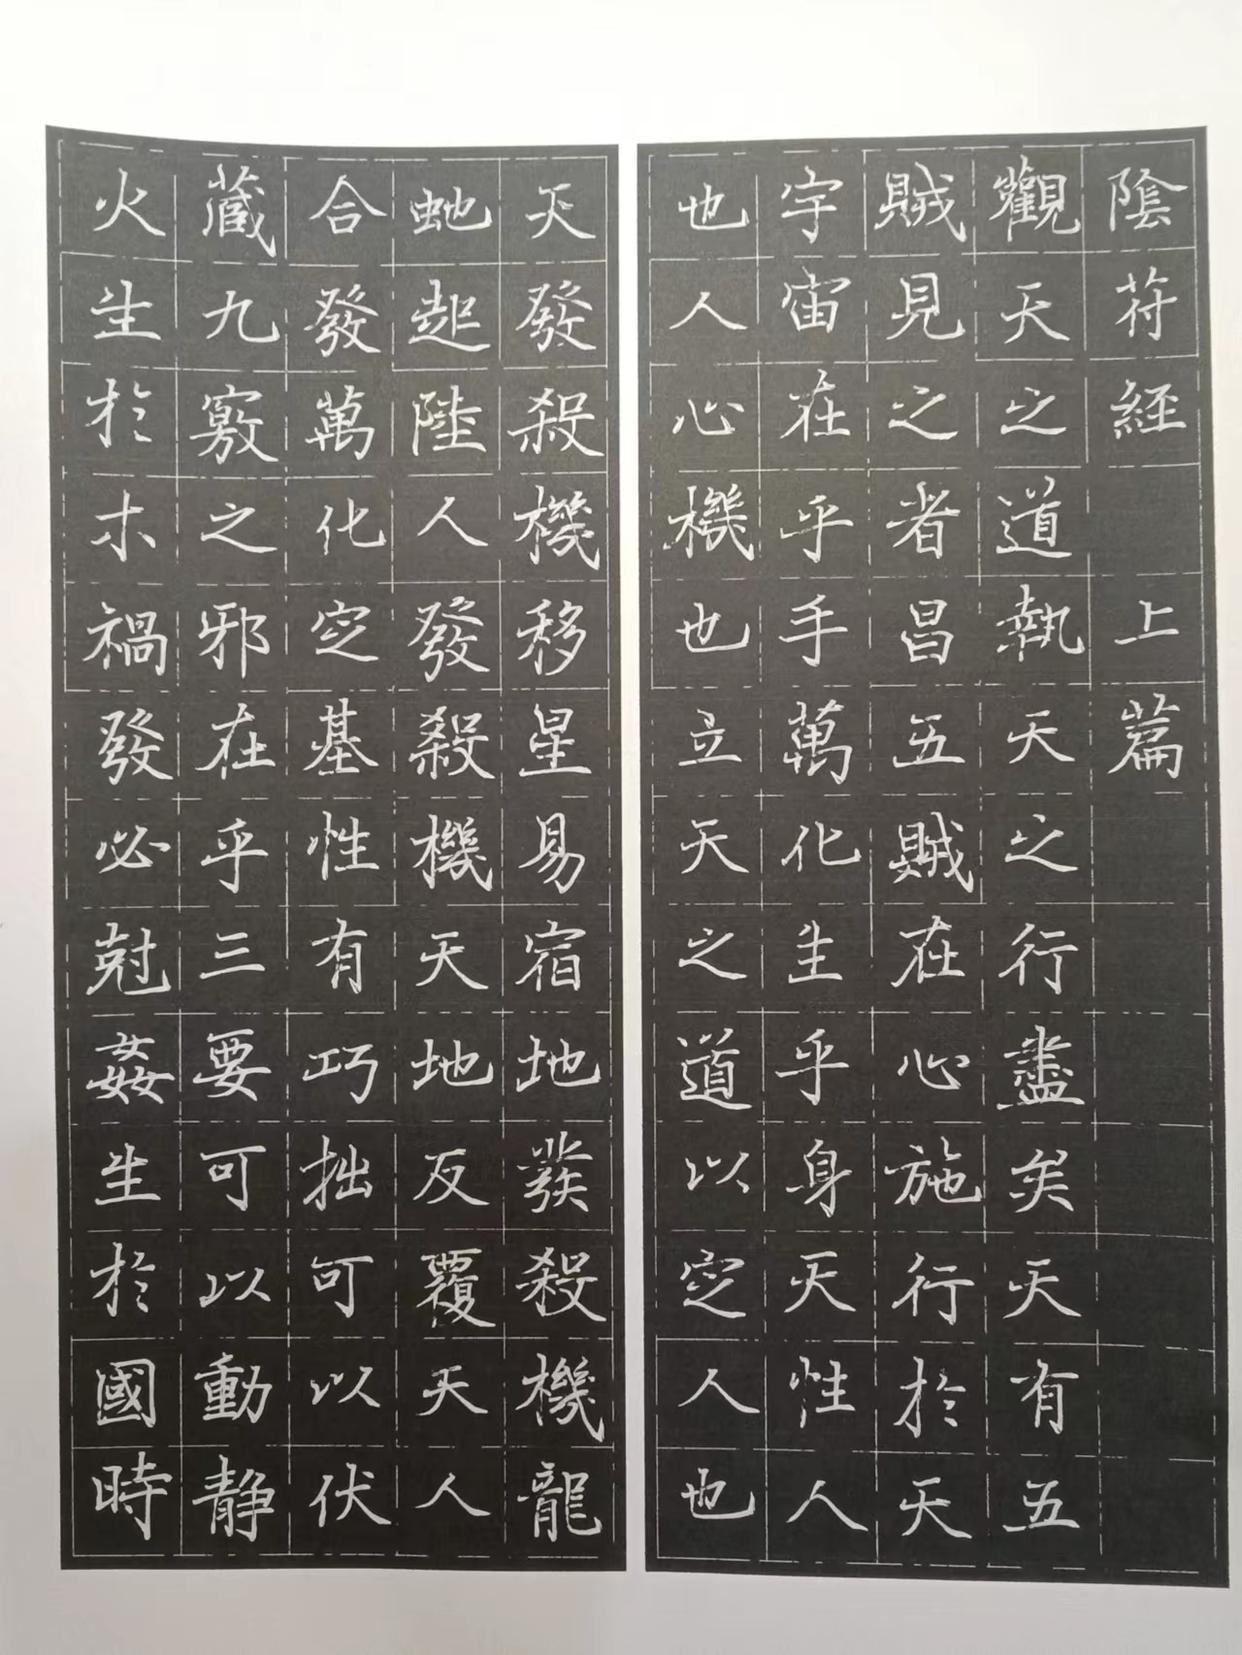 陰符經 上篇
觀天之道執天之行盡矣天有五
賊見之者昌五賊在心施行於天
宇宙在乎手萬化生乎身天性人
也人心機也立天之道以定人也
天發殺機移星易宿地發殺機龍
蛇起陸人發殺機天地反覆天人
合發萬化定基性有巧拙可以伏
藏九竅之邪在乎三要可以動靜
火生於木禍發必尅姦生於國時